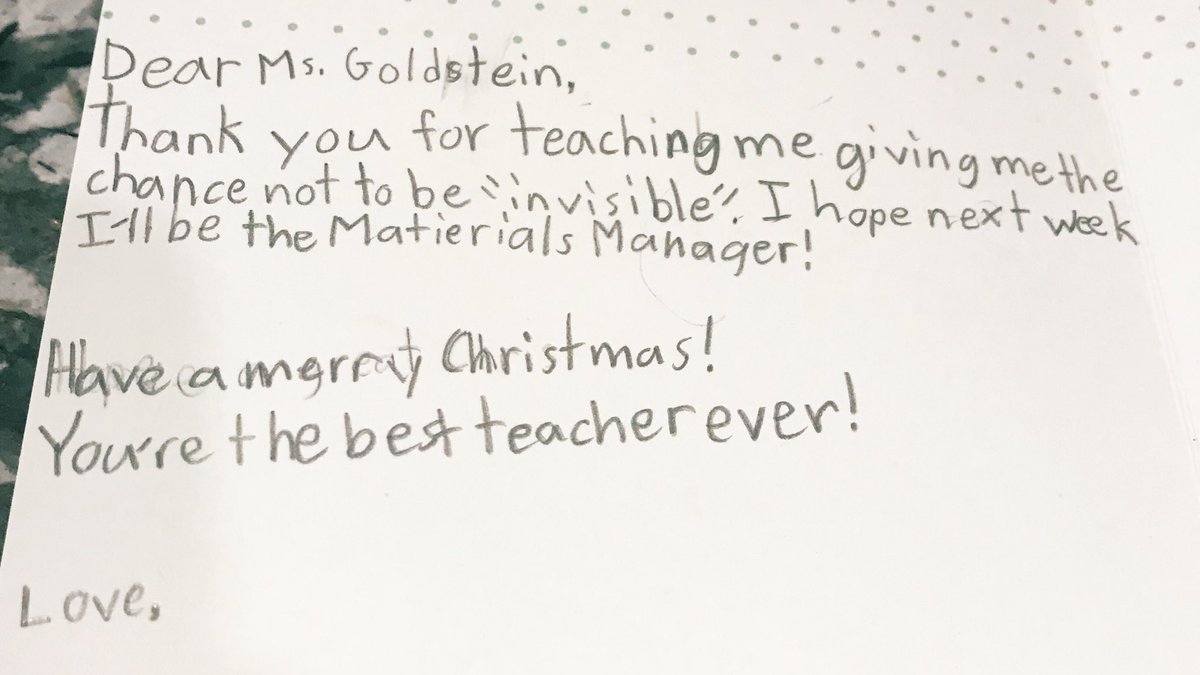 Dear Ms. Goldstein,
Thank you for teaching me giving me the
chance not to be "invisible". I hope next week
I'll be the Matierials Manager!
Have a merry Christmas!
You're the best teacher ever!
Love,